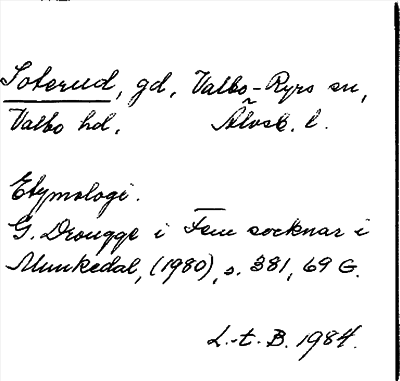 Soterud, gd, Valbo-Ryrs sn,
Valbo hd, Älvsb. l.
Etymologi.
G. Drougge i Fem socknar i
Munkedal, (1980), s. 381, 69 G.
L.-t. B. 1984.